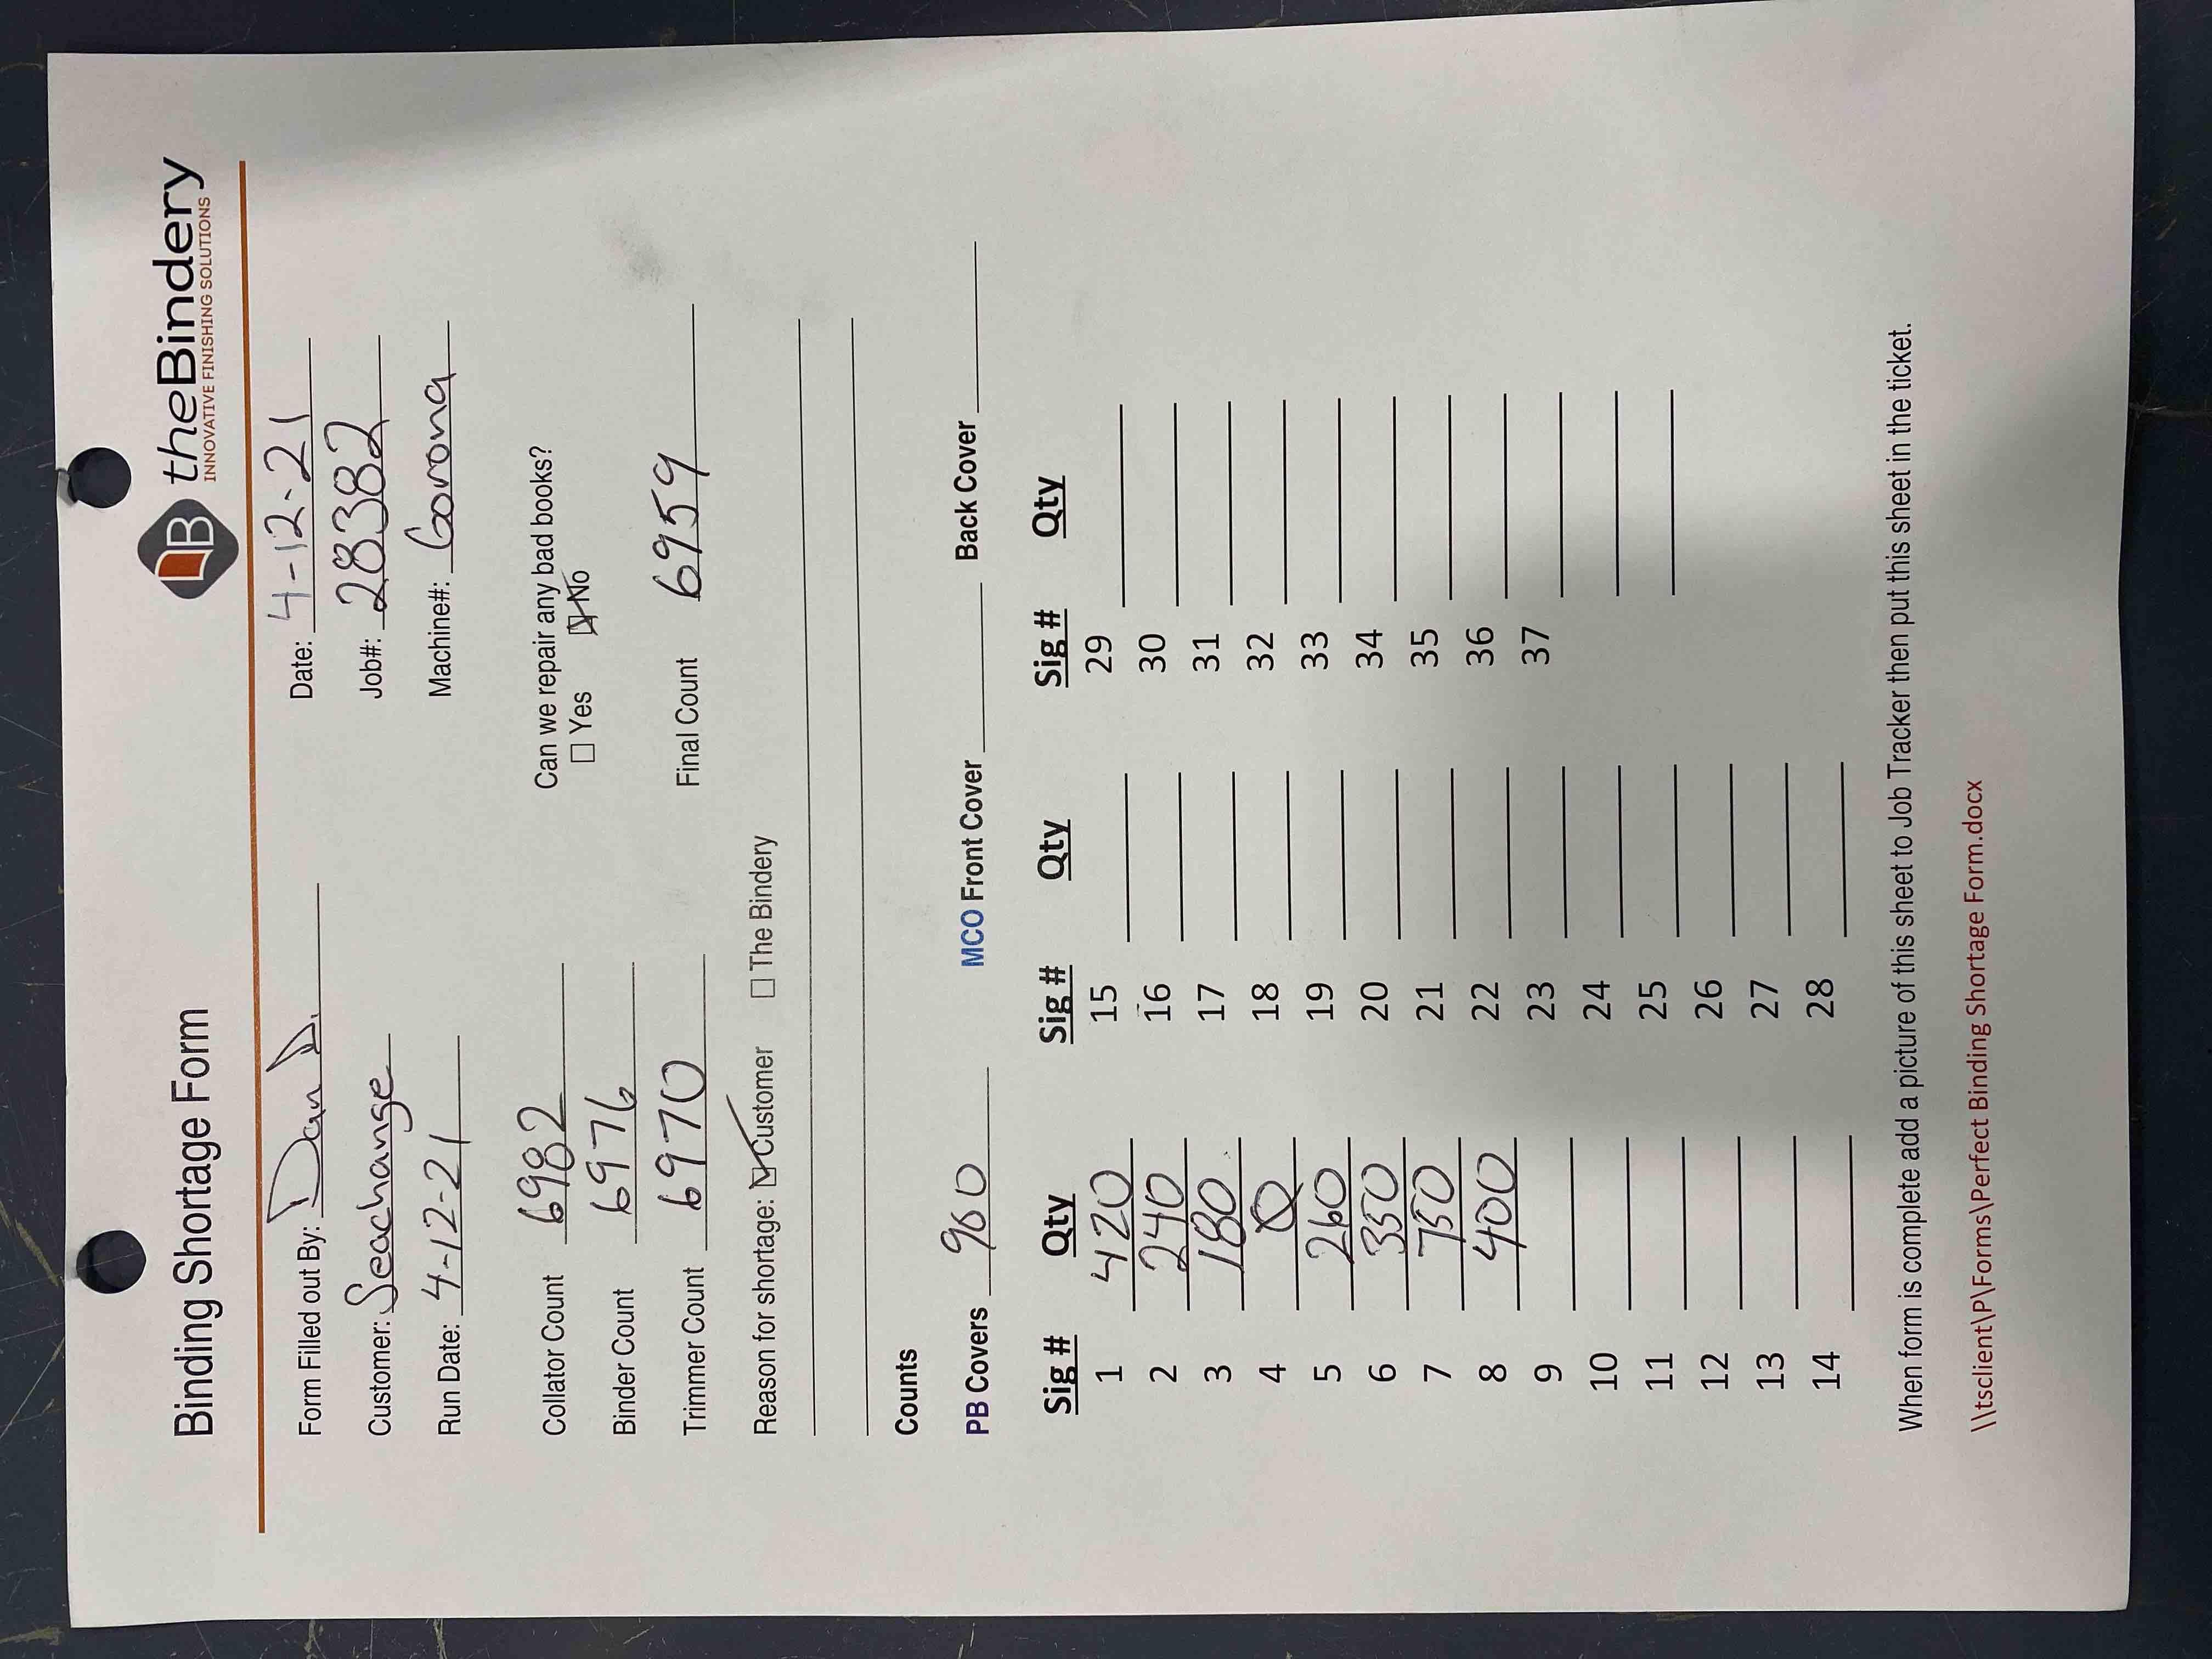 Binding Shortage Form
B theBindery
INNOVATIVE FINISHING SOLUTIONS
Form Filled out By: Dan D. Date: 4-12-21
Customer: Seachange Job#: 28382
Run Date: 4-12-21 Machine#: Corona
Collator Count 6982 Can we repair any bad books?
Binder Count 6976 ☐ Yes ☒ No
Trimmer Count 6970 Final Count 6959
Reason for shortage: ☑ Customer ☐ The Bindery
Counts
PB Covers 960 MCO Front Cover Back Cover
Sig # Qty Sig # Qty Sig # Qty
1 420 15 29
2 240 16 30
3 180 17 31
4 0 18 32
5 260 19 33
6 350 20 34
7 750 21 35
8 400 22 36
9 23 37
10 24
11 25
12 26
13 27
14 28
When form is complete add a picture of this sheet to Job Tracker then put this sheet in the ticket.
\\tsclient\P\Forms\Perfect Binding Shortage Form.docx